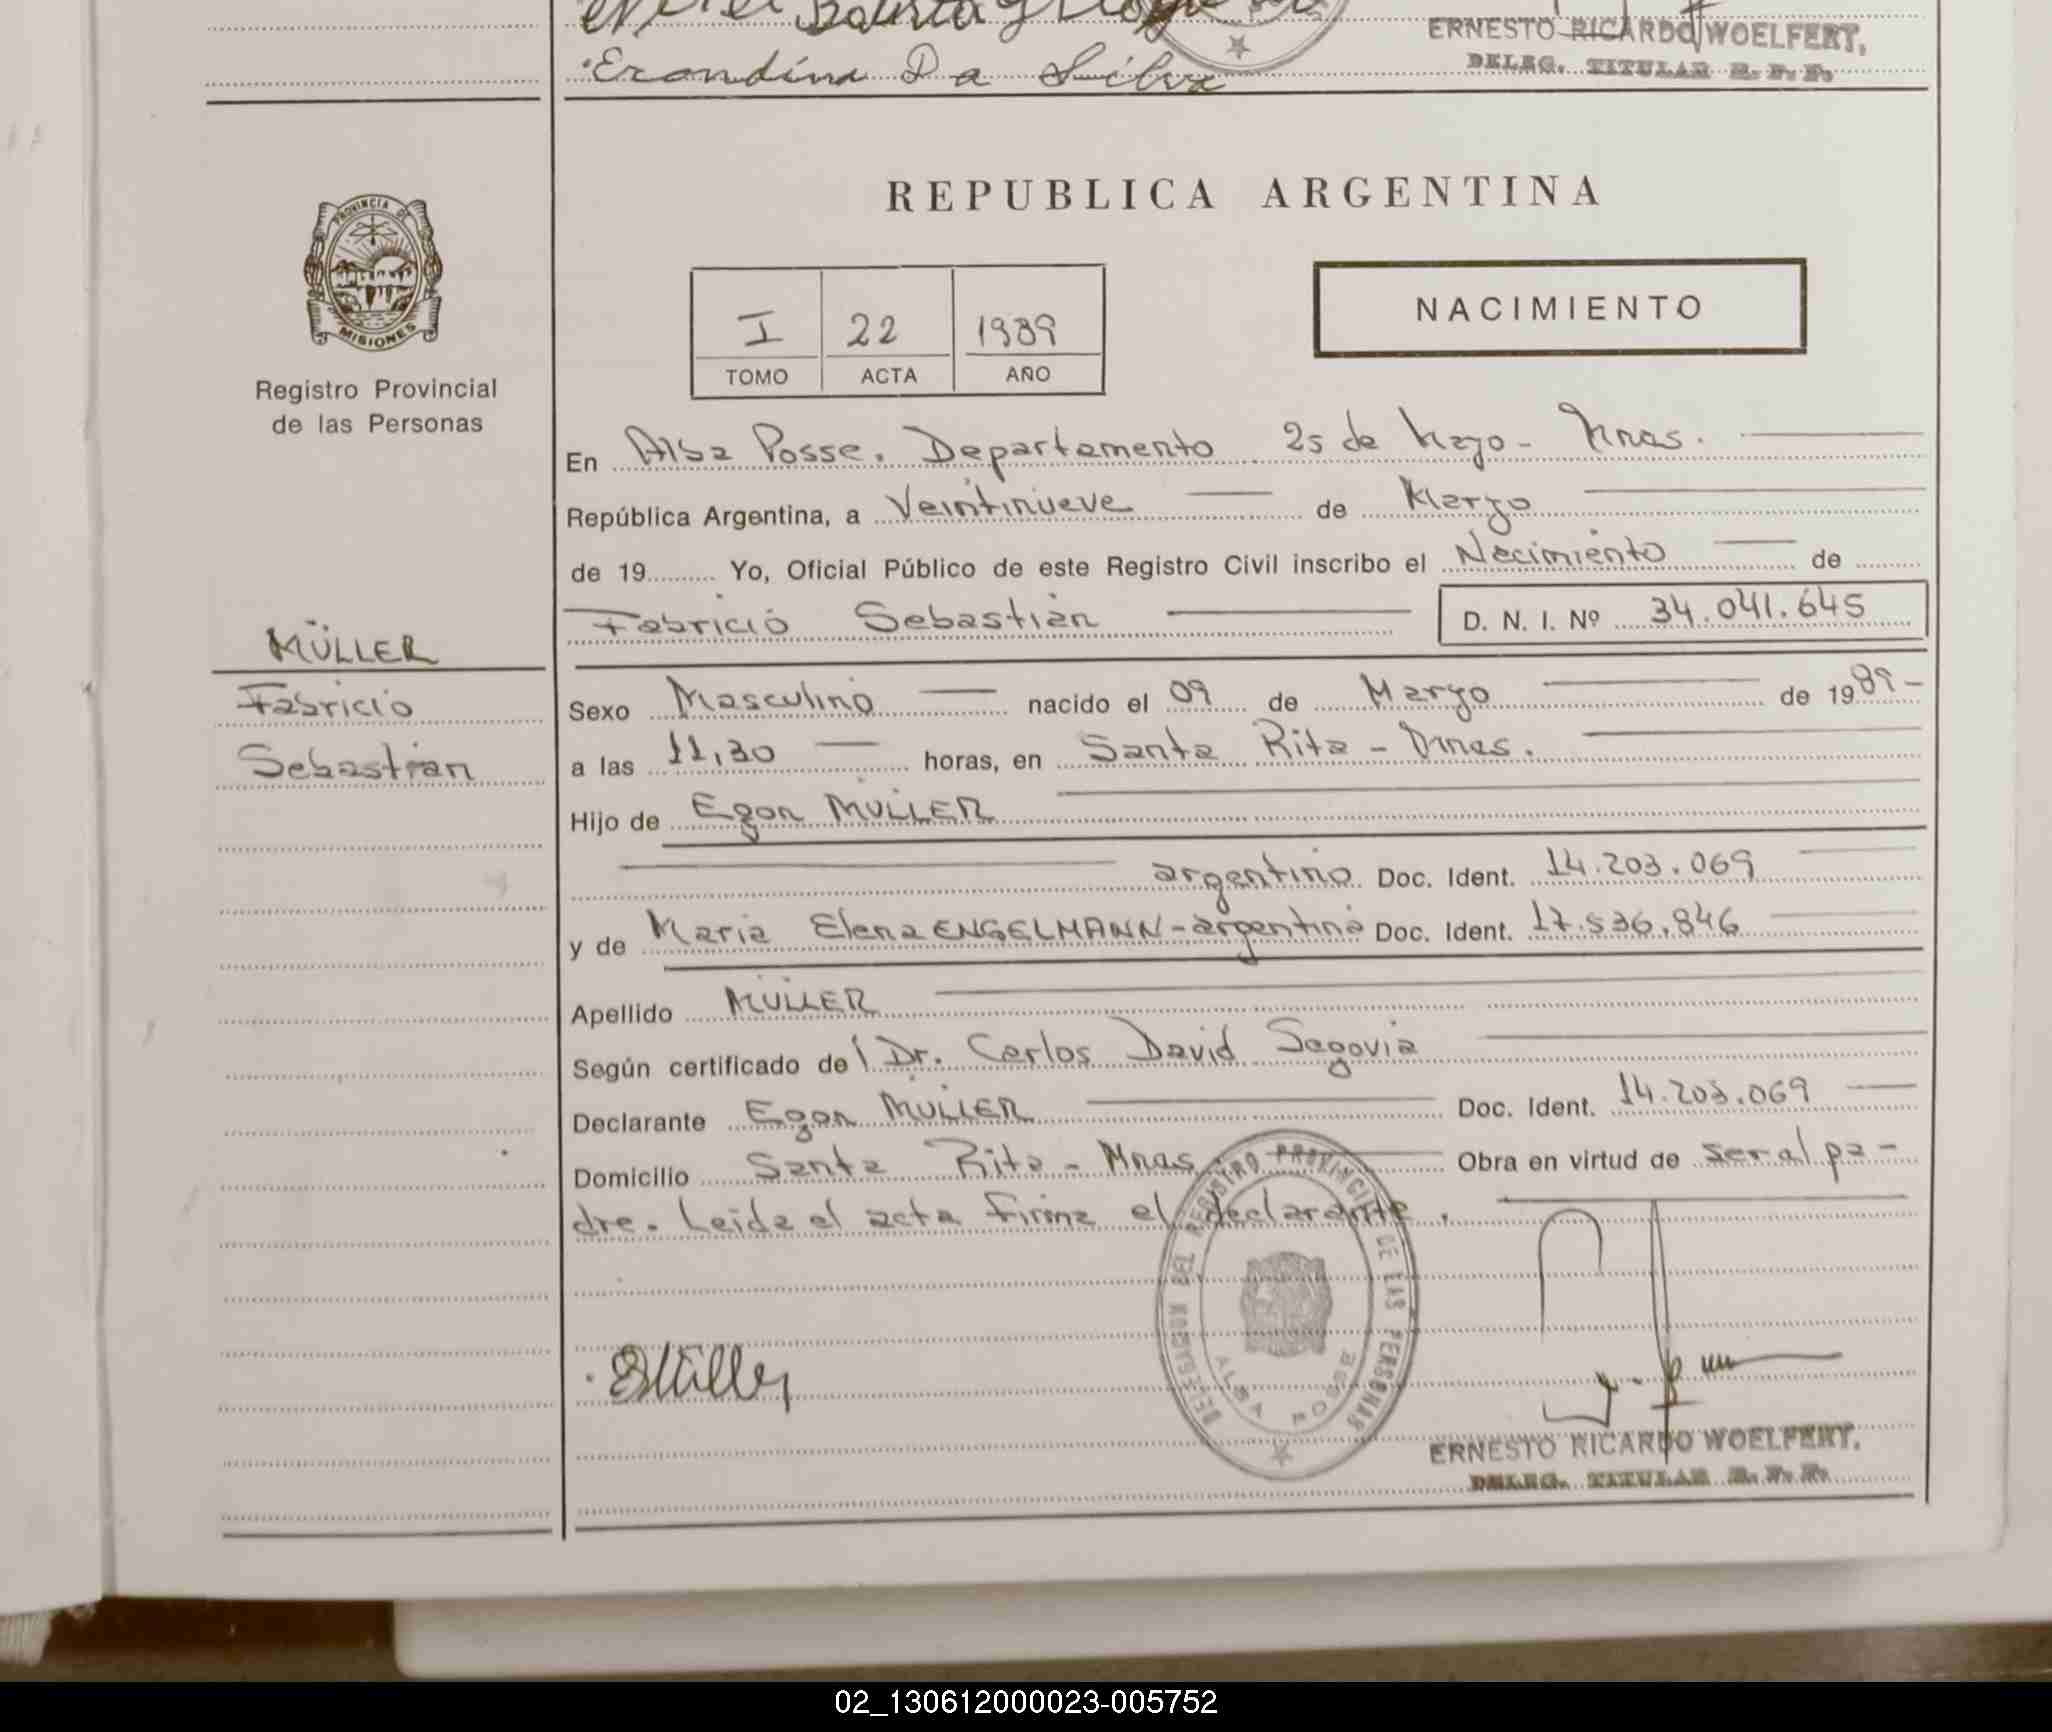 Erondina Da Silva
ERNESTO RICARDO WOELFERT,
DELEG. TITULAR R. P. P.
PROVINCIA DE
MISIONES
Registro Provincial
de las Personas
MÜLLER
Fabricio
Sebastián
REPUBLICA ARGENTINA
I 22 1989
TOMO ACTA AÑO
NACIMIENTO
En Alba Posse. Departamento 25 de Mayo - Mnes.
República Argentina, a Veintinueve de Marzo
de 19 Yo, Oficial Público de este Registro Civil inscribo el Nacimiento de
Fabricio Sebastián D. N. I. Nº 34.041.645
Sexo Masculino nacido el 09 de Marzo de 1989-
a las 11,30 horas, en Santa Rita - Mnes.
Hijo de Egon MÜLLER
argentino Doc. Ident. 14.203.069
y de Maria Elena ENGELMANN - argentina Doc. Ident. 17.536.846
Apellido MÜLLER
Según certificado del Dr. Carlos David Segovia
Declarante Egon MÜLLER Doc. Ident. 14.203.069
Domicilio Santa Rita - Mnes. Obra en virtud de ser al pa-
dre. Leida el acta firma el declarante.
DELEGACION DEL REGISTRO PROVINCIAL DE LAS PERSONAS
ALBA POSSE
EMüller
ERNESTO RICARDO WOELFERT,
DELEG. TITULAR R. P. P.
02_130612000023-005752